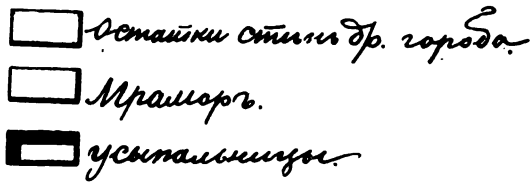 Остатки стѣнъ др. города.
Мраморъ.
усыпальницы.